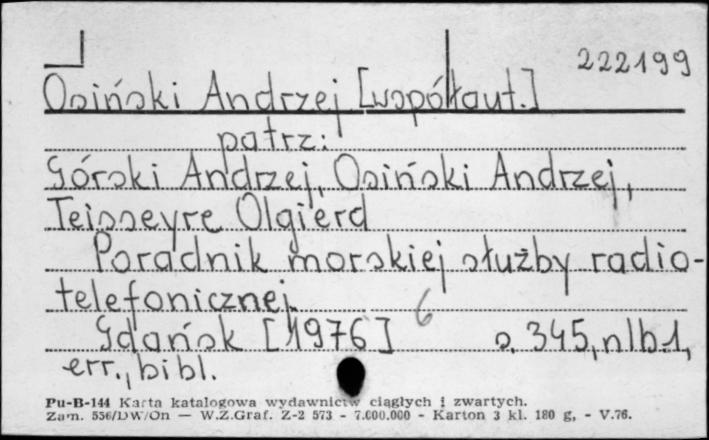 222199
Osiński Andrzej [współaut.]
patrz:
Górski Andrzej, Osiński Andrzej,
Teisseyre Olgierd
Poradnik morskiej służby radio-
telefonicznej.
Gdańsk [1976] 6 s. 345, nlb.1,
err., bibl.
Pu-B-144 Karta katalogowa wydawnictw ciągłych i zwartych.
Zam. 556/DW/On — W.Z.Graf. Z-2 573 - 7.000.000 - Karton 3 kl. 180 g, - V.76.